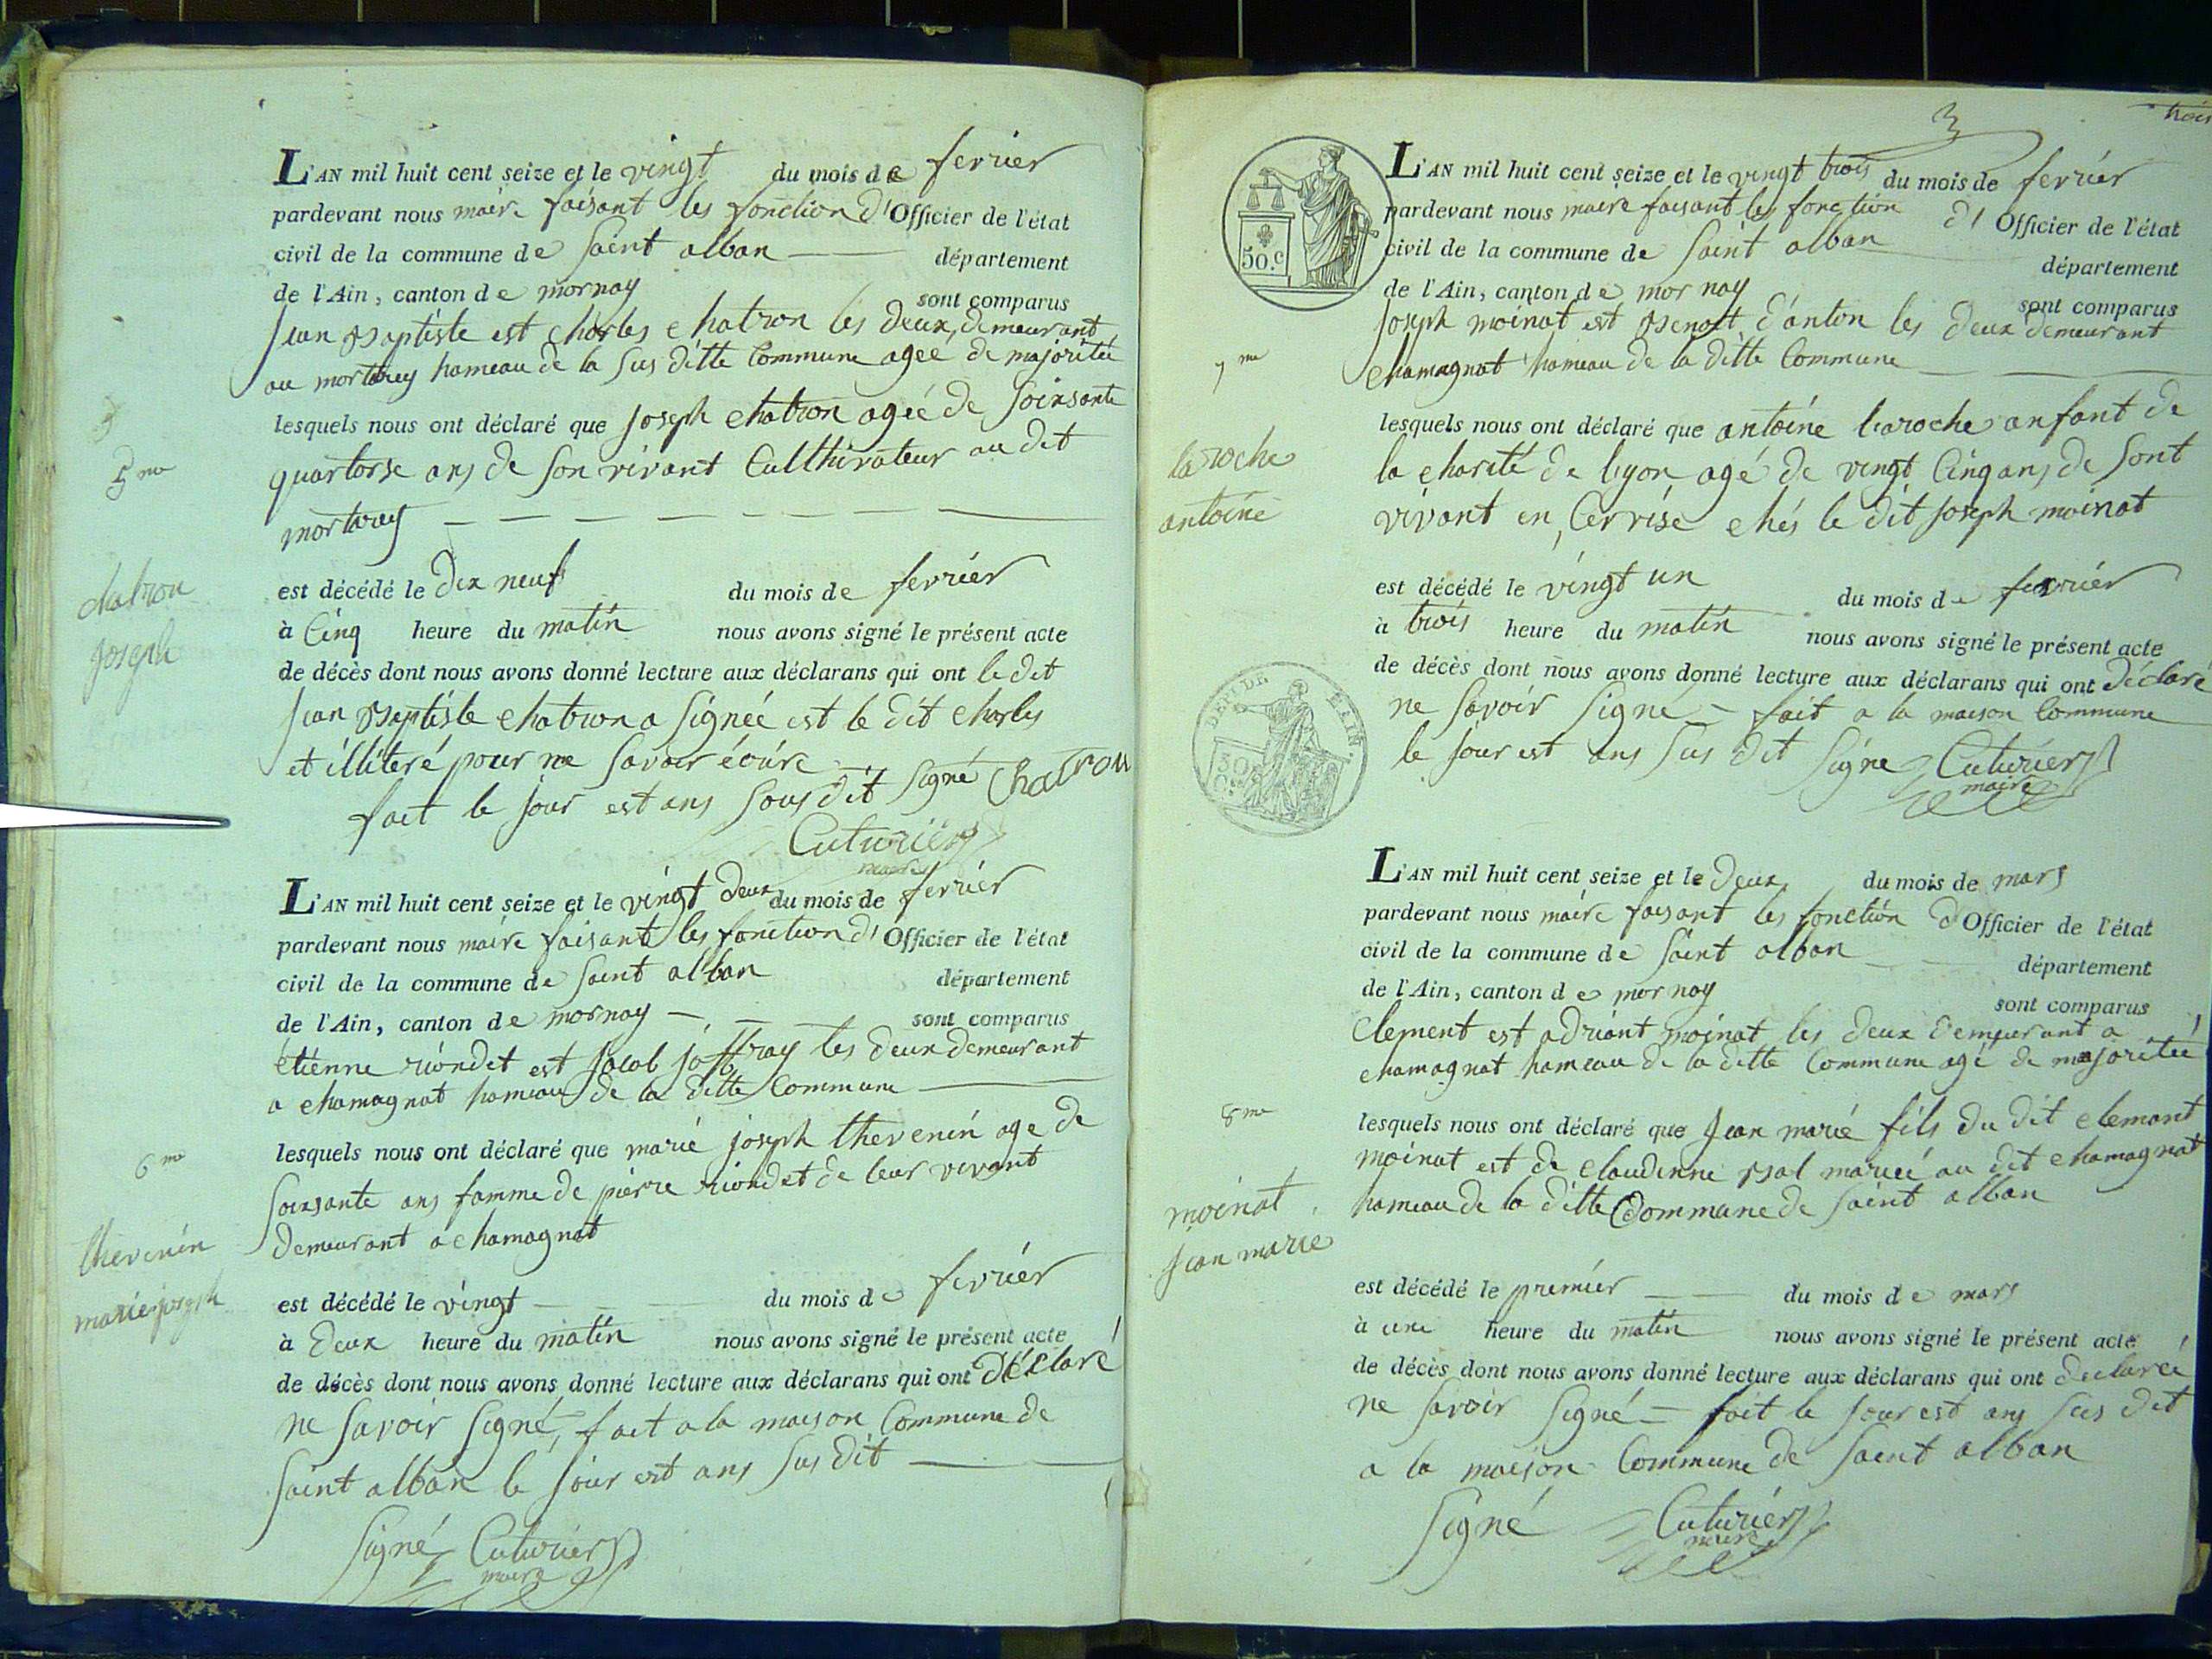 L'AN mil huit cent seize et le vingt du mois de ferrier
pardevant nous maire faisant les fonction d'Officier de l'état
civil de la commune de Saint alban département
de l'Ain, canton de mornay sont comparus
Jean Baptiste est charles chatron les deux demeurant
au mortaray hameau de la sus ditte Commune ageé de majoritée
lesquels nous ont déclaré que joseph chatron ageé de Soixsante
quartorse ans de son vivant Cullthivateur au dit
mortaray
5me
chatron
joseph
est décédé le dix neuf du mois de ferriér
à Cinq heure du matin nous avons signé le présent acte
de décès dont nous avons donné lecture aux déclarans qui ont le dit
Jean Baptiste chatron a signeé est le dit charles
et illiteré pour ne savoir écrire Signé Chatron
fait le jour est ans sous dit
Cuturier
maire
L'AN mil huit cent seize et le vingt deux du mois de ferriér
pardevant nous maire faisant les fonction d'Officier de l'état
civil de la commune de Saint alban département
de l'Ain, canton de mornay sont comparus
etienne riondet est Jacob joffray les deux demeurant
a chamagnat hameau de la ditte Commune
lesquels nous ont déclaré que marie joseph thevenin age de
Soixsante ans famme de pierre riondet de leur vivant
demeurant a chamagnat
6me
thevenin
marie joseph
est décédé le vingt du mois de ferriér
à deux heure du matin nous avons signé le présent acte
de décès dont nous avons donné lecture aux déclarans qui ont déclaré
ne savoir signé, fait a la maison Commune de
Saint alban le jour est ans sus dit
Signé Cuturier
maire
3
trois
50.c
L'AN mil huit cent seize et le vingt trois du mois de ferriér
pardevant nous maire faisant les fonction d'Officier de l'état
civil de la commune de Saint alban département
de l'Ain, canton de mornay sont comparus
Joseph moinat est Benoit d'anton les deux demeurant
chamagnat hameau de la ditte Commune
7me
laroche
antoine
lesquels nous ont déclaré que antoine laroche anfant de
la charité de lyon agé de vingt Cinq ans de sont
vivant en Cerrise chés le dit joseph moinat
est décédé le vingt un du mois de ferriér
à trois heure du matin nous avons signé le présent acte
de décès dont nous avons donné lecture aux déclarans qui ont déclaré
ne savoir signe fait a la maison Commune
le jour est ans sus dit Signe Cuturier
maire
L'AN mil huit cent seize et le deux du mois de mars
pardevant nous maire faisant les fonction d'Officier de l'état
civil de la commune de Saint alban département
de l'Ain, canton de mornay sont comparus
Clement est adriant moinat les deux demeurant a
chamagnat hameau de la ditte Commune agé de majoritée
8me
moinat
jean marie
lesquels nous ont déclaré que jean marie fils du dit clemant
moinat est de claudinne Bal marieé au dit chamagnat
hameau de la ditte Commune de Saint alban
est décédé le premier du mois de mars
à une heure du matin nous avons signé le présent acte
de décès dont nous avons donné lecture aux déclarans qui ont declareé
ne savoir signé fait le jour est ans sus dit
a la maison Commune de Saint alban
Signé Cuturier
maire